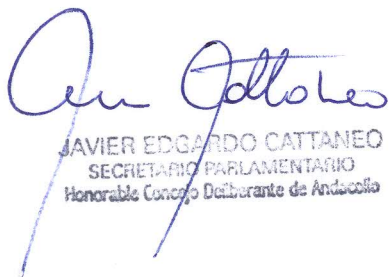 JAVIER EDGARDO CATTANEO
SECRETARIO PARLAMENTARIO
Honorable Concejo Deliberante de Andacollo